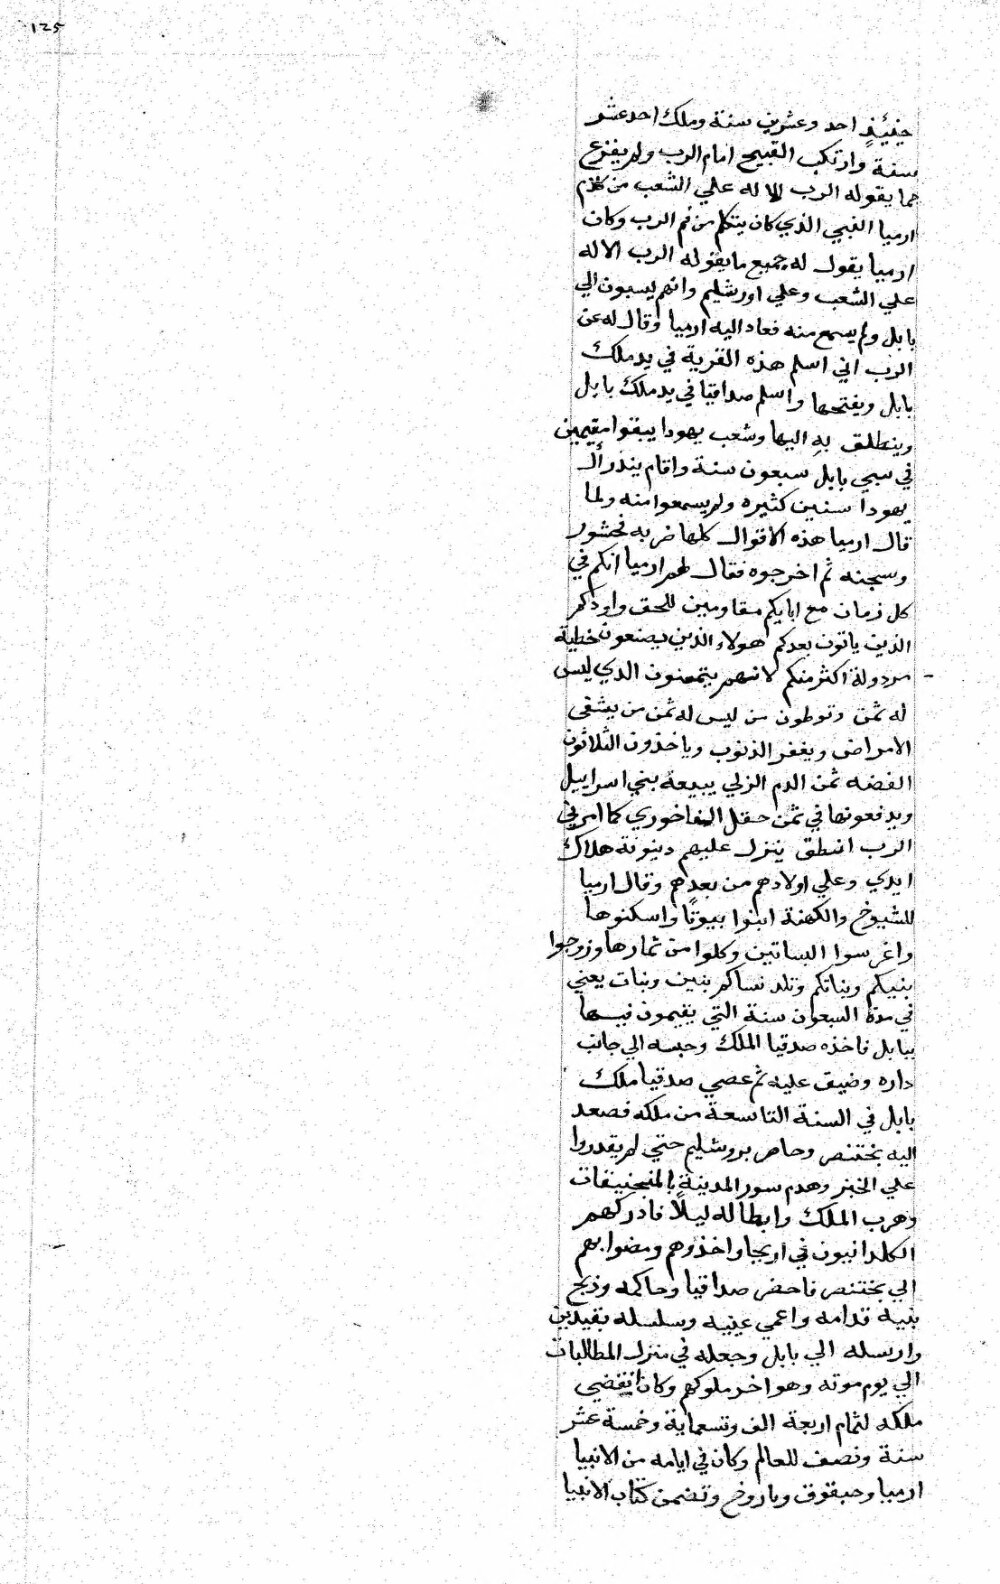 ١٢٥
حينيذٍ احد وعشرين سنة وملك احد عشر
سنة وارتكب القبيح امام الرب ولم يفزع
مما يقوله الرب الاله علي الشعب من كلام
ارميا النبي الذي كان يتكلم من فم الرب وكان
ارميا يقول له جميع ما يقوله الرب الاله
علي الشعب وعلي اورشليم وانهم يسبون الي
بابل ولم يسمع منه فعاد اليه ارميا وقال له عن
الرب اني اسلم هذه القرية في يد ملك
بابل ويفتحها واسلم صداقيا في يد ملك بابل
وينطلق به اليها وشعب يهودا يبقوا مقيمين
في سبي بابل سبعون سنة واقام ينذر ال
يهودا سنين كثيره ولم يسمعوا منه ولما
قال ارميا هذه الاقوال كلها ضربه فحشور
وسجنه ثم اخرجوه فقال لهم ارميا انكم في
كل زمان مع ابايكم مقاومين للحق واولادكم
الذين ياتون بعدكم هولاء الذين يصنعون خطية
مردولة اكثر منكم لانهم يتمنون الدي ليس
له ثمن وتوطون من ليس له ثمن من يشفي
الامراض ويغفر الذنوب وياخذون الثلاثون
الفضه ثمن الدم الزكي يبيعة بني اسراييل
ويدفعونها في ثمن حقل الفاخوري كما امرني
الرب انطق ينزل عليهم دينونة هلاك
ابدي وعلي اولادهم من بعدهم وقال ارميا
للشيوخ والكهنة ابنوا بيوتًا واسكنوها
واغرسوا البساتين وكلوا من ثمارها وزوجوا
بنيكم وبناتكم وتلد نساكم بنين وبنات يعني
في مدة السبعون سنة التي يقيمون فيها
ببابل فاخذه صدقيا الملك وحبسه الي جانب
داره وضيق عليه ثم عصي صدقيا ملك
بابل في السنة التاسعة من ملكه فصعد
اليه بختنصر وحاصر يروشليم حتي لم يقدروا
علي الخبز وهدم سور المدينة بالمنجنيقات
وهرب الملك وابطاله ليلًا فادركهم
الكلدانيون في اريحا واخذوهم ومضوا بهم
الي بختنصر فاحضر صداقيا وحاكمه وذبح
بنيه قدامه واعمي عينيه وسلسله بقيدين
وارسله الي بابل وجعله في منزل المطالبات
الي يوم موته وهو اخر ملوكهم وكان انقضي
ملكه لتمام اربعة الف وتسعماية وخمسة عشر
سنة ونصف للعالم وكان في ايامه من الانبيا
ارميا وحبقوق وباروخ وتضمن كتاب الانبيا